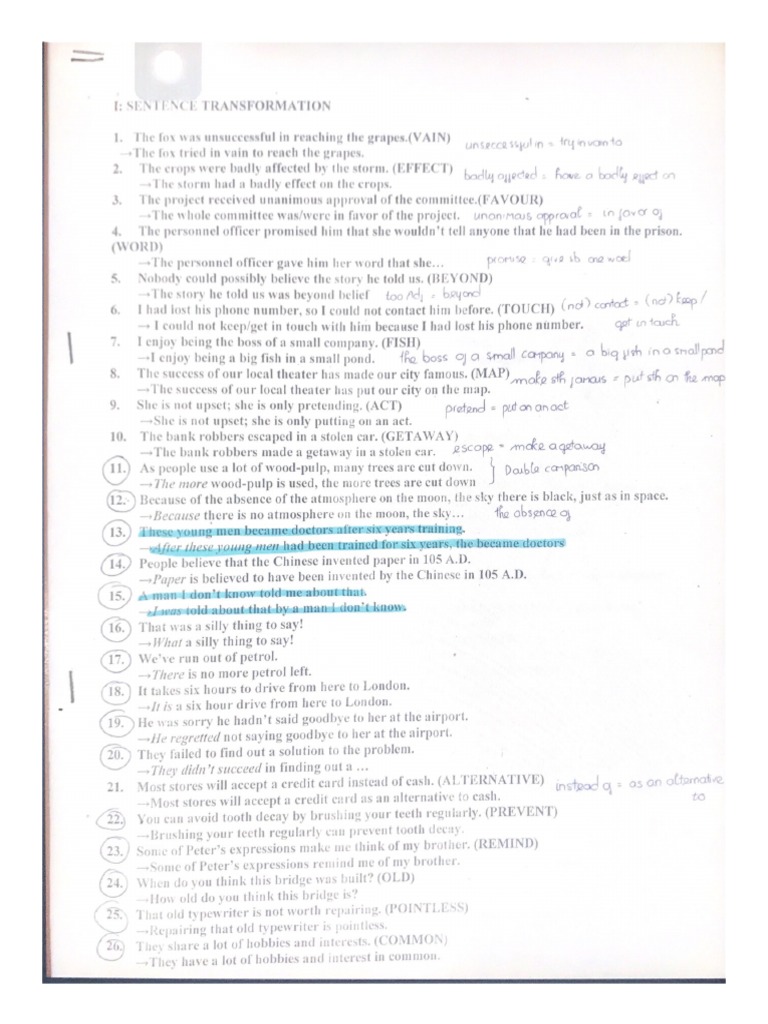 I: SENTENCE TRANSFORMATION
1. The fox was unsuccessful in reaching the grapes.(VAIN) unseccessful in = try in vain to
→The fox tried in vain to reach the grapes.
2. The crops were badly affected by the storm. (EFFECT) badly affected = have a badly effect on
→The storm had a badly effect on the crops.
3. The project received unanimous approval of the committee.(FAVOUR)
→The whole committee was/were in favor of the project. unonimous approval = in favor of
4. The personnel officer promised him that she wouldn't tell anyone that he had been in the prison.
(WORD)
→The personnel officer gave him her word that she… promise = give sb one word
5. Nobody could possibly believe the story he told us. (BEYOND)
→The story he told us was beyond belief too Adj = beyond
6. I had lost his phone number, so I could not contact him before. (TOUCH) (not) contact = (not) keep /
→ I could not keep/get in touch with him because I had lost his phone number. get in touch
7. I enjoy being the boss of a small company. (FISH)
→I enjoy being a big fish in a small pond. the boss of a small company = a big fish in a small pond
8. The success of our local theater has made our city famous. (MAP) make sth famous = put sth on the map
→The success of our local theater has put our city on the map.
9. She is not upset; she is only pretending. (ACT) pretend = put on an act
→She is not upset; she is only putting on an act.
10. The bank robbers escaped in a stolen car. (GETAWAY)
→The bank robbers made a getaway in a stolen car. escape = make a getaway
11. As people use a lot of wood-pulp, many trees are cut down. Double comparison
→The more wood-pulp is used, the more trees are cut down
12. Because of the absence of the atmosphere on the moon, the sky there is black, just as in space.
→Because there is no atmosphere on the moon, the sky… the absence of
13. These young men became doctors after six years training.
→After these young men had been trained for six years, the became doctors
14. People believe that the Chinese invented paper in 105 A.D.
→Paper is believed to have been invented by the Chinese in 105 A.D.
15. A man I don't know told me about that.
→I was told about that by a man I don't know.
16. That was a silly thing to say!
→What a silly thing to say!
17. We've run out of petrol.
→There is no more petrol left.
18. It takes six hours to drive from here to London.
→It is a six hour drive from here to London.
19. He was sorry he hadn't said goodbye to her at the airport.
→He regretted not saying goodbye to her at the airport.
20. They failed to find out a solution to the problem.
→They didn't succeed in finding out a …
21. Most stores will accept a credit card instead of cash. (ALTERNATIVE) instead of = as an alternative
→Most stores will accept a credit card as an alternative to cash. to
22. You can avoid tooth decay by brushing your teeth regularly. (PREVENT)
→Brushing your teeth regularly can prevent tooth decay.
23. Some of Peter's expressions make me think of my brother. (REMIND)
→Some of Peter's expressions remind me of my brother.
24. When do you think this bridge was built? (OLD)
→How old do you think this bridge is?
25. That old typewriter is not worth repairing. (POINTLESS)
→Repairing that old typewriter is pointless.
26. They share a lot of hobbies and interests. (COMMON)
→They have a lot of hobbies and interest in common.